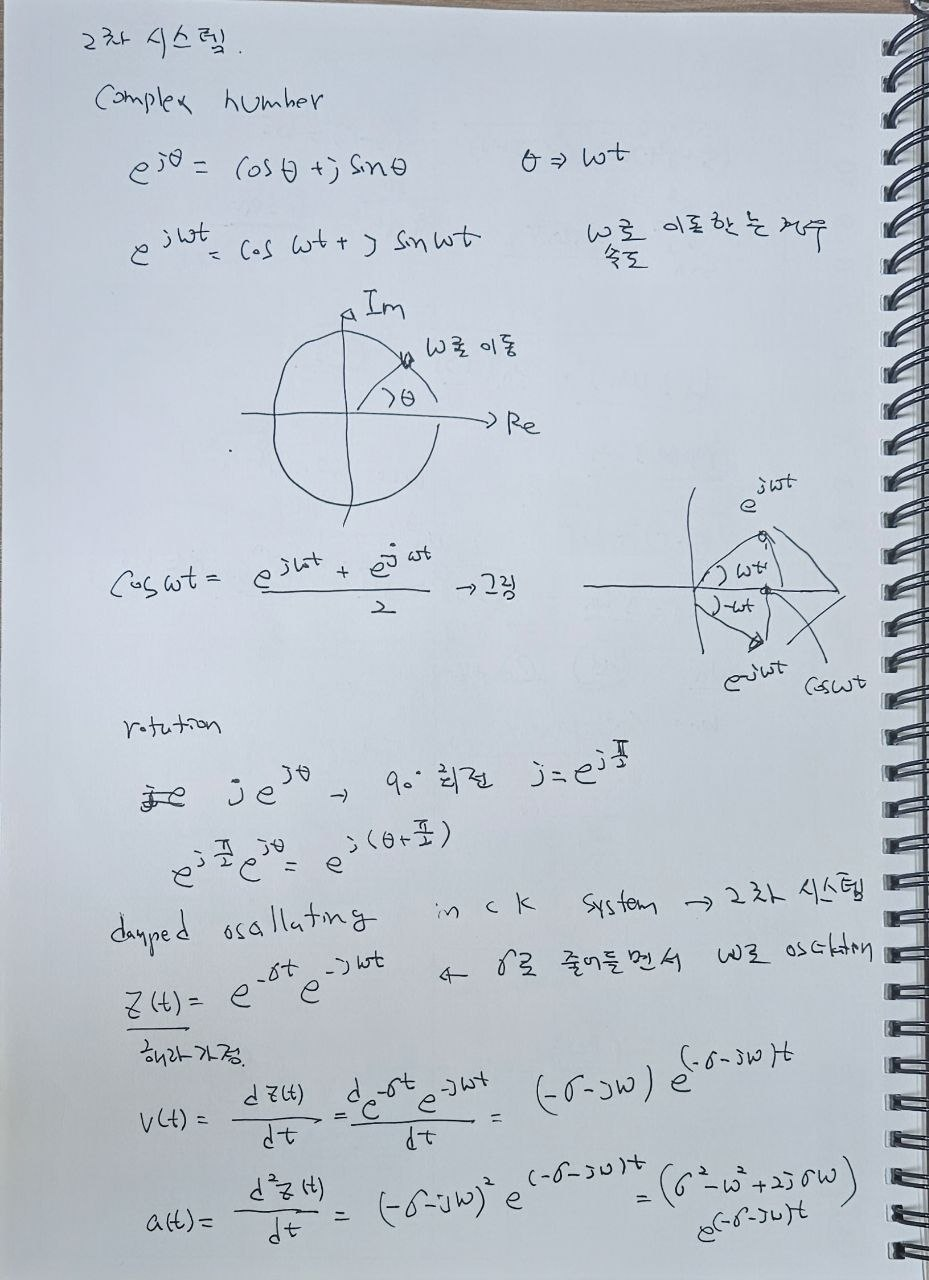 2차 시스템.
Complex number
e^{jθ} = cosθ + j sinθ θ ⇒ ωt
e^{jωt} = cos ωt + j sin ωt ω로 이동하는 경우
속도
Im
ω로 이동
θ
Re
e^{jωt}
cos ωt = (e^{jωt} + e^{-jωt}) / 2 → 그림
ωt
-ωt
e^{-jωt} cosωt
rotution
j e^{jθ} → 90° 회전 j = e^{jπ/2}
e^{jπ/2} e^{jθ} = e^{j(θ+π/2)}
damped osallating in c k system → 2차 시스템
Z(t) = e^{-σt} e^{-jωt} ← σ로 줄어들면서 ω로
해라 가정.
v(t) = dZ(t)/dt = d e^{-σt} e^{-jωt}/dt = (-σ-jω) e^{(-σ-jω)t}
a(t) = d²Z(t)/dt = (-σ-jω)² e^{(-σ-jω)t} = (σ²-ω²+2jσω)
e^{(-σ-jω)t}